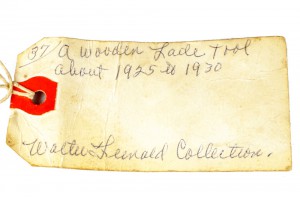 37 A Wooden Lade Tool
about 1925 to 1930
Walter Collection.